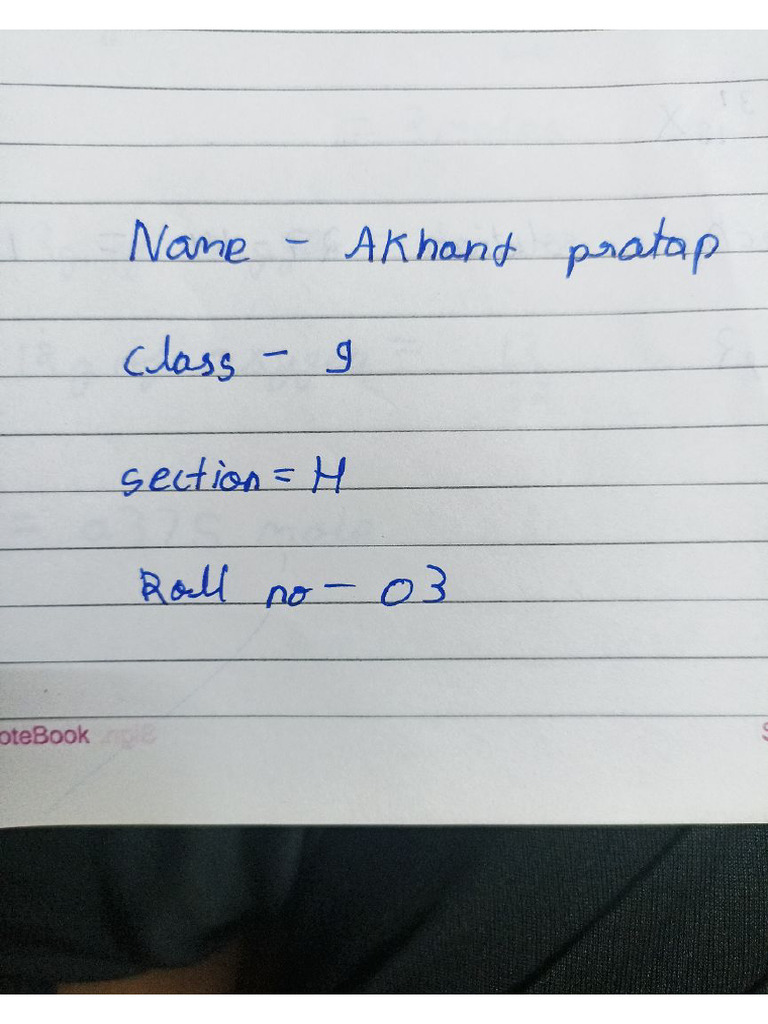 Name - AKhand pratap
Class - 9
section = H
Roll no - 03
oteBook